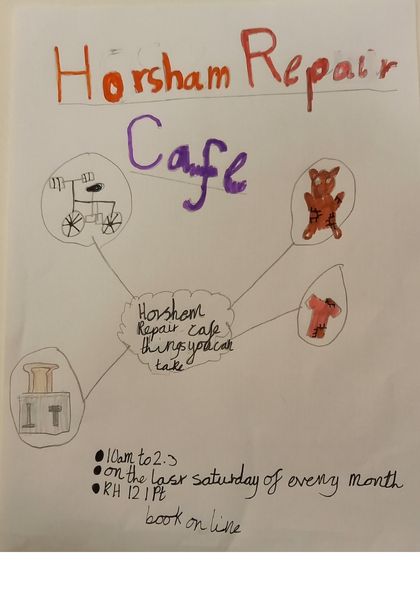 Horsham Repair
Cafe
Horsham
Repair cafe
things you can
take
I T
10am to 2.3
on the last saturday of every month
RH 12 1 Pt
book on line